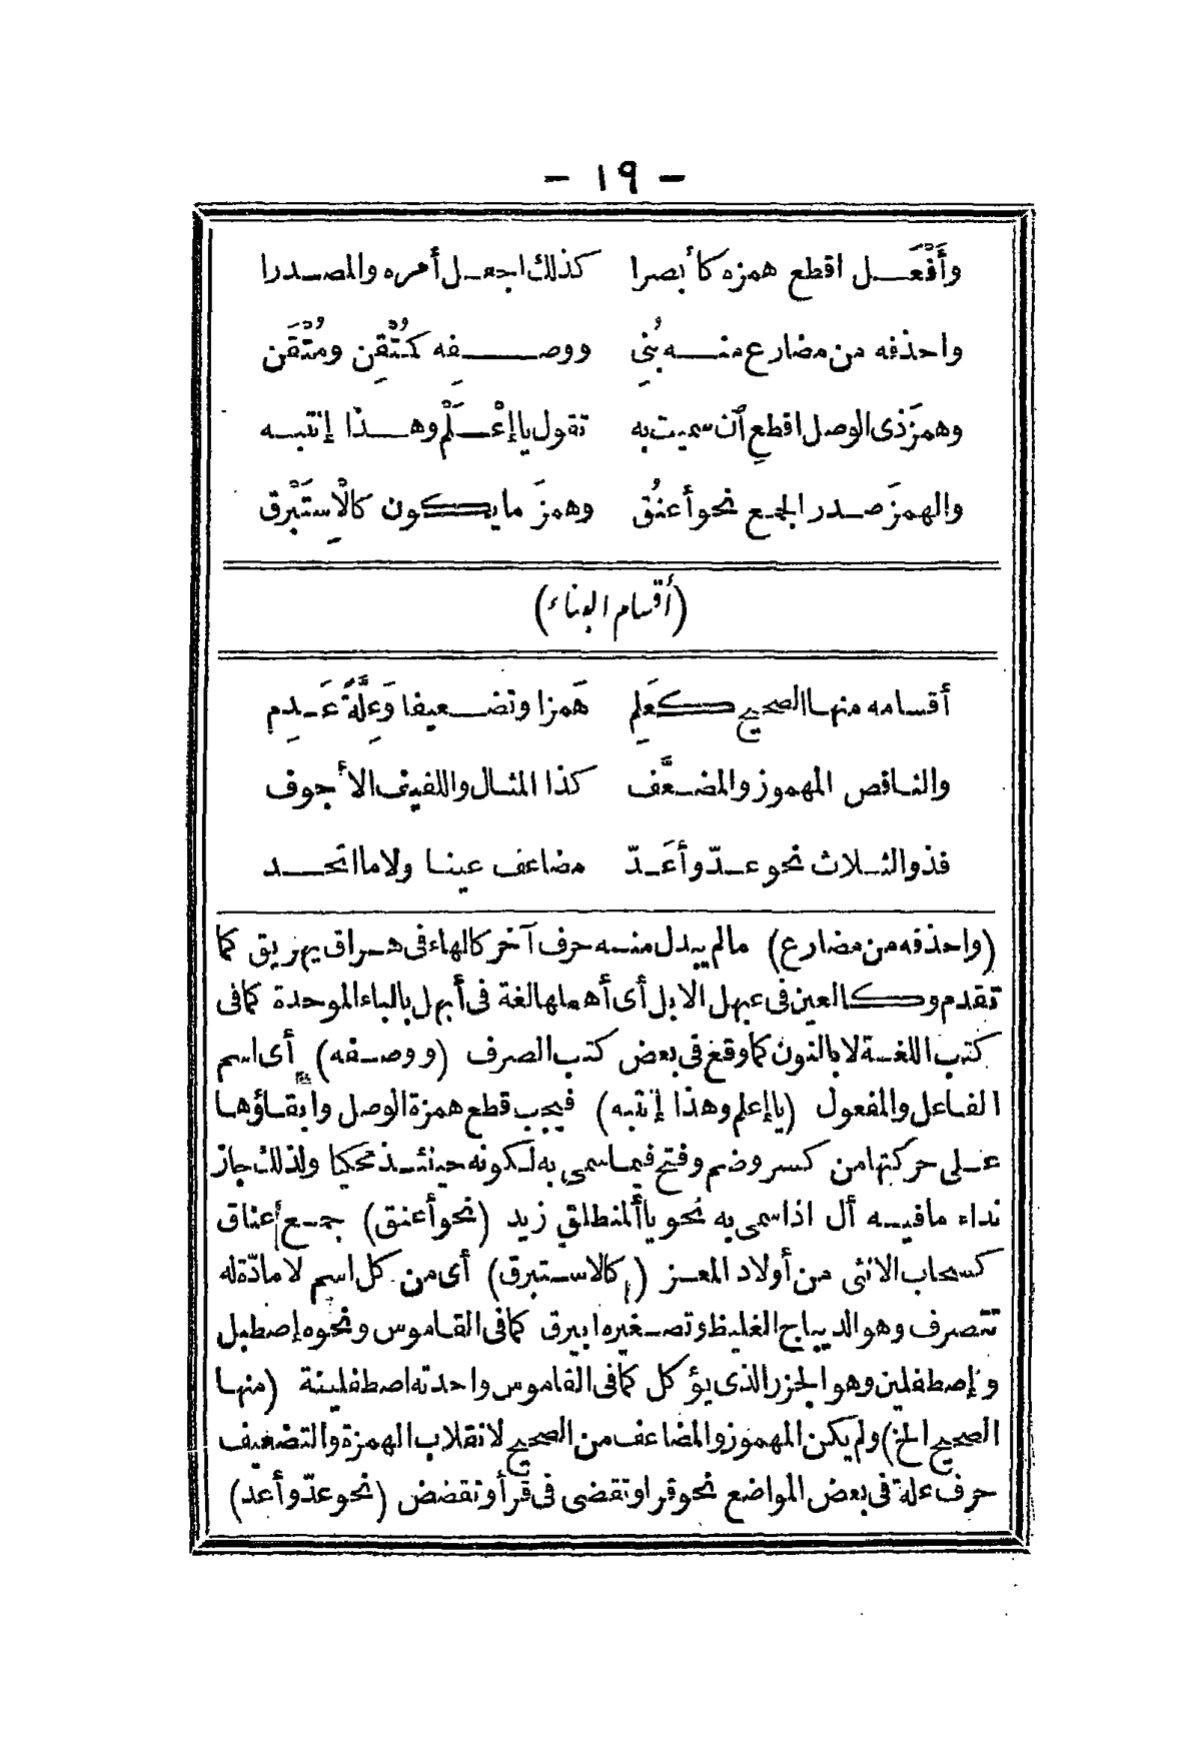 - ١٩ -
وأَفْعَل اقطع همزه كأبصرا كذلك اجعل أمره والمصدرا
واحذفه من مضارع منه بُنِي ووصفه كَمُتْقِن ومُتْقَن
وهمزَ ذى الوصل اقطعِ ٱن سميت به تقول يا إعْلَمْ وهذا إنتبه
والهمزَ صدر الجمع نحو أعنُق وهمزَ ما يكون كالْإستَبْرق
(أقسام البناء)
أقسامه منها الصحيح كعَلِم هَمزا وتضعيفا وَعِلَّةً عَدِم
والناقص المهموز والمضعَّف كذا المثال واللفيف الأجوف
فذو الثلاث نحو عدّ وأعَدّ مضاعف عينا ولاما اتحد
(واحذفه من مضارع) مالم يبدل منه حرف آخر كالهاء فى هراق يهريق كما
تقدم وكالعين فى عبهل الابل أى أهملها لغة فى أبهل بالباء الموحدة كما فى
كتب اللغة لا بالنون كما وقع فى بعض كتب الصرف (ووصفه) أى اسم
الفاعل والمفعول (يا إعلم وهذا إنتبه) فيجب قطع همزة الوصل وابقاؤها
على حركتها من كسر وضم وفتح فيما سمى به لكونه حينئذ محكيا ولذلك جاز
نداء ما فيه أل اذا سمى به نحو يا ألمنطلق زيد (نحو أعنق) جمع أعناق
كسحاب الانثى من أولاد المعز (كالاستبرق) أى من كل اسم لا مادّة له
تتصرف وهو الديباج الغليظ وتصغيره ابيرق كما فى القاموس ونحوه إصطبل
وإصطفلين وهو الجزر الذى يؤكل كما فى القاموس واحدته اصطفلينة (منها
الصحيح الخ) ولم يكن المهموز والمضاعف من الصحيح لانقلاب الهمزة والتضعيف
حرف علة فى بعض المواضع نحو قرا وتقضى فى قرأ وتقضض (نحو عدّ وأعد)